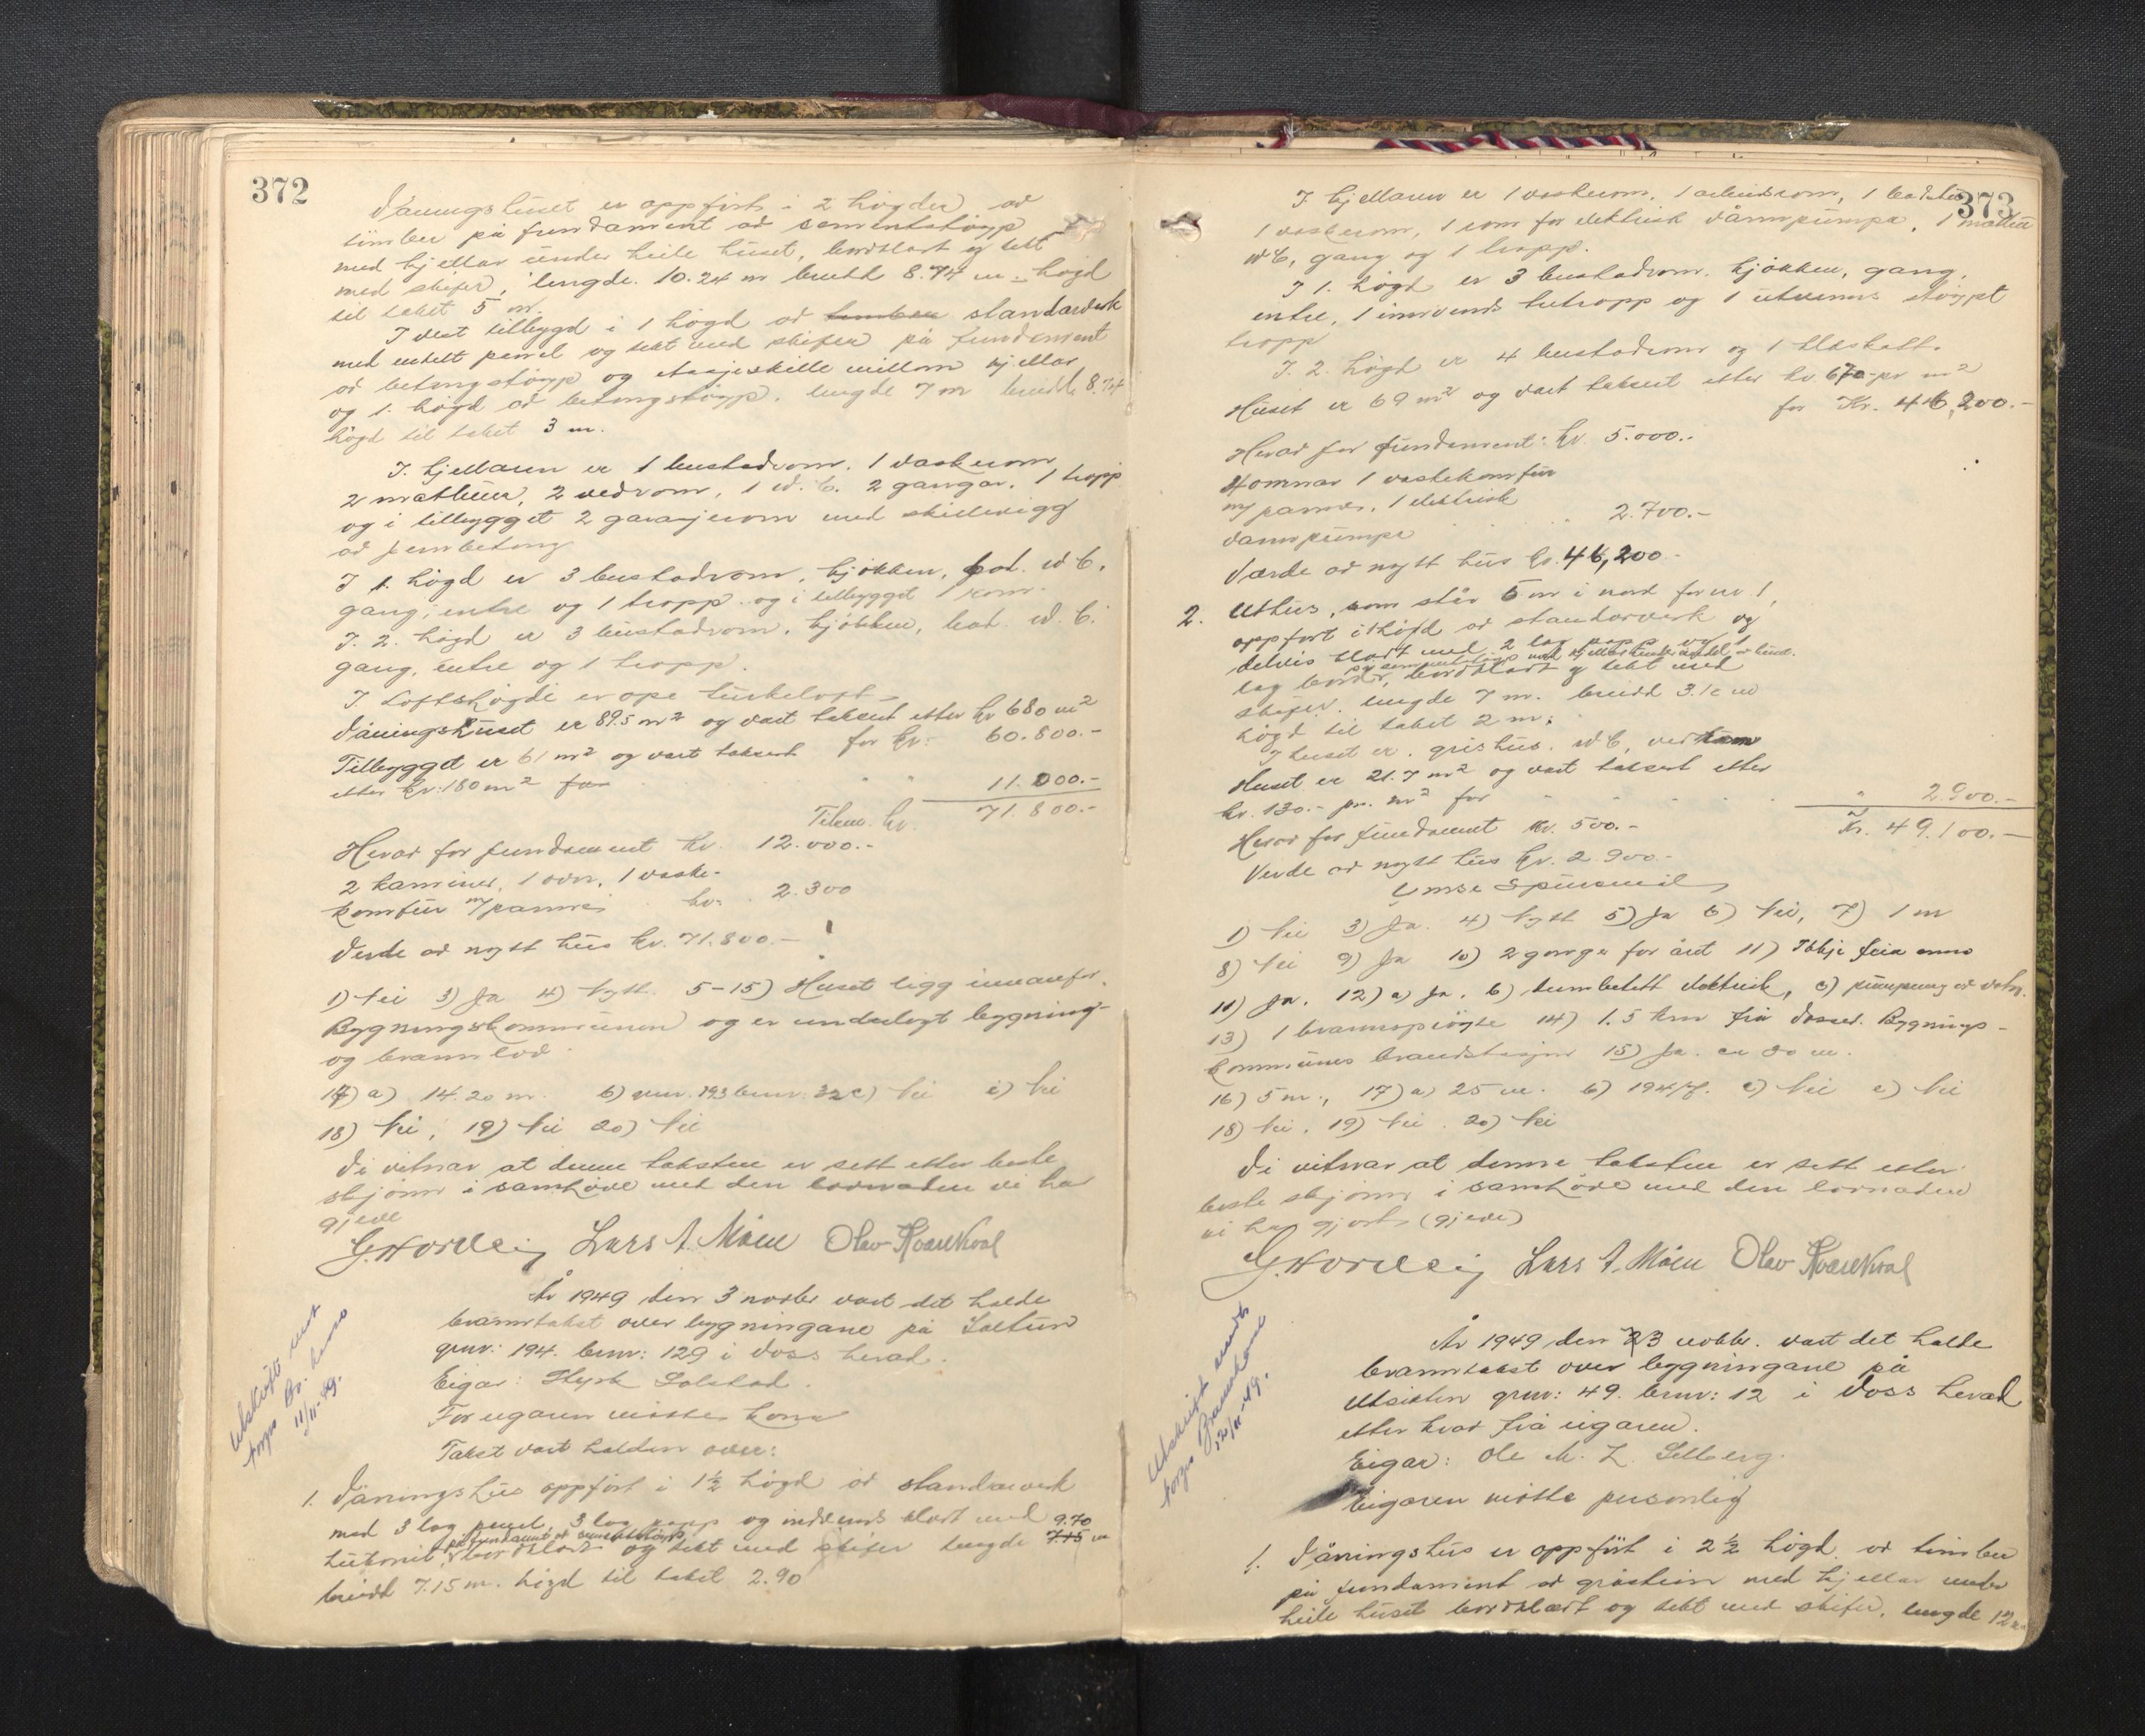 372
Våningshuset er oppført i 2 høgder av
timber på fundament av sementstøyp
med kjellar under heile huset, bordklædt og tekt
med skifer, lengde 10.24 m breidd 8.74 m høgd
til taket 5 m.
I vest tilbygd i 1 høgd av timber standarverk
med enkelt panel og tekt med skifer på fundament
av betongstøyp og etasjeskille millom kjellar
og 1. høgd av betongstøyp, lengde 7 m breidde 8.74
høgd til taket 3 m.
I. kjellaren er 1 bustadrom, 1 vaskerom
2 matbuer, 2 vedrom, 1 W.C. 2 gangar, 1 tropp
og i tilbygget 2 garasjerom med skillevegg
av jernbetong
I 1. høgd er 3 bustadrom, kjøkken, bad. W.C.
gang, entre og 1 tropp. og i tilbygget 1 rom.
I. 2. høgd er 3 bustadrom, kjøkken, bad. W.C.
gang, entre og 1 tropp.
I. Loftshøgdi er ope turkeloft
Våningshuset er 89.5 m² og vart taksert etter kr 680 m²
for kr: 60.800.-
Tilbygget er 61 m² og vart taksert
etter kr: 180 m² for " " 11.000.-
Tilsam. kr. 71.800.-
Herav for fundament kr. 12.000.-
2 kaminer, 1 omn, 1 vaske-
komfur m/panner kr. 2.300
Verde av nytt hus kr. 71.800.-
1) Nei 3) Ja 4) Nytt. 5-15) Huset ligg innanfor
Bygningskommunen og er underlagt bygning-
og brannlov
17) a) 14.20 m. b) gnr. 193 bnr. 32 c) Nei e) Nei
18) Nei, 19) Nei 20) Nei
Vi vitnar at denne taksten er sett etter beste
skjønn i samhøve med den lovnaden vi har
gjeve
G. Horvei Lars A. Måen Olav Kvarekval
År 1949 den 3 novbr vart det halde
branntakst over bygningane på Soltun
gnr: 194. bnr: 129 i Voss herad.
Eigar: Solstad.
For eigaren møtte kona
Takst vart halden over:
1. Våningshus oppført i 1½ høgd av standarverk
med 3 lag panel, 3 lag papp og innvends klædt med 9.70
på fundament av sementstøyp
huntonit, bordklædt og tekt med skifer lengde 7.15 m
breidd 7.15 m. høgd til taket 2.90
Utskrift sendt
Norges Br. kasse
11/11-49.
373
I. kjellaren er 1 vaskerom, 1 arbeidsrom, 1 badstu
1 vaskerom, 1 rom for elektrisk vannpumpe, 1 matbu
W.C, gang og 1 tropp.
I 1. høgd er 3 bustadrom, kjøkken, gang,
entre, 1 innvends tretropp og 1 utvenns støypt
tropp
I. 2. høgd er 4 bustadrom og 1 kleskott.
Huset er 69 m² og vart taksert etter kr 670 pr m²
for Kr. 46,200.-
Herav for fundament: kr. 5.000.-
Komnar 1 vaskekomfur
m/panner, 1 elektrisk
vannpumpe 2.700.-
Verde av nytt hus kr. 46,200.-
2. Uthus, som står 5 m i nord for nr. 1,
oppført i 1 høgd av standarverk og
delvis klædt med 2 lag papp og 1
på sementstøyp med kjellar under del av huset.
lag bordr, bordklædt og tekt med
skifer. lengde 7 m. breidd 3.10 m
høgd til taket 2 m.
I huset er. grishus. W.C, vedrom
Huset er 21.7 m² og vart taksert etter
kr. 130.- pr. m² for " 2.900.-
Herav for fundament kr. 500.- Kr. 49.100.-
Verde av nytt hus kr. 2.900.-
Ymse Spursmål
1) Nei 3) Ja. 4) Nytt 5) Ja 6) Nei, 7) 1 m
8) Nei 9) Ja 10) 2 gonger for året 11) Ikkje feia enno
11) Ja. 12) a) Ja, b) elektrisk, c) pumpe
13) 1 brannsprøyte 14) 1.5 km frå Vossev. Bygnings-
kommunes brandstasjon 15) Ja. ca 80 m.
16) 5 m., 17) a) 25 m. b) 194/7. c) Nei e) Nei
18) Nei. 19) Nei. 20) Nei
Vi vitnar at denne taksten er sett etter
beste skjønn i samhøve med den lovnaden
vi har gjort (gjeve)
G. Horvei Lars A. Måen Olav Kvarekval
År 1949 den 23 novbr. vart det halde
branntakst over bygningane på
Utsikten gnr: 49. bnr: 12 i Voss herad
etter krav frå eigaren.
Eigar: Ole M. L. Selberg.
Eigaren møtte personleg
1. Våningshus er oppført i 2½ høgd av timber
på fundament av gråstein med kjellar under
heile huset bordklædt og tekt med skifer, lengde 12 m
Utskrift sendt
Norges Brannkasse